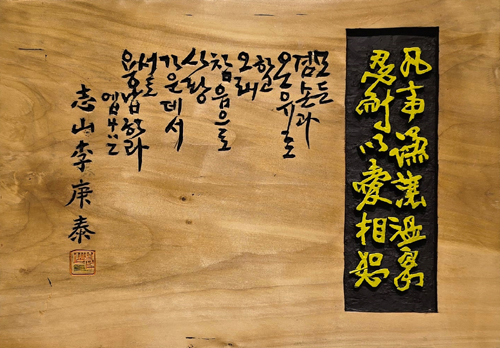 凡事謙讓溫柔
忍耐以愛相恕
모든
겸손과
온유로
하고
오래
참음으로
사랑
가운데서
서로
용납하라
엡4:2
志山李庚泰